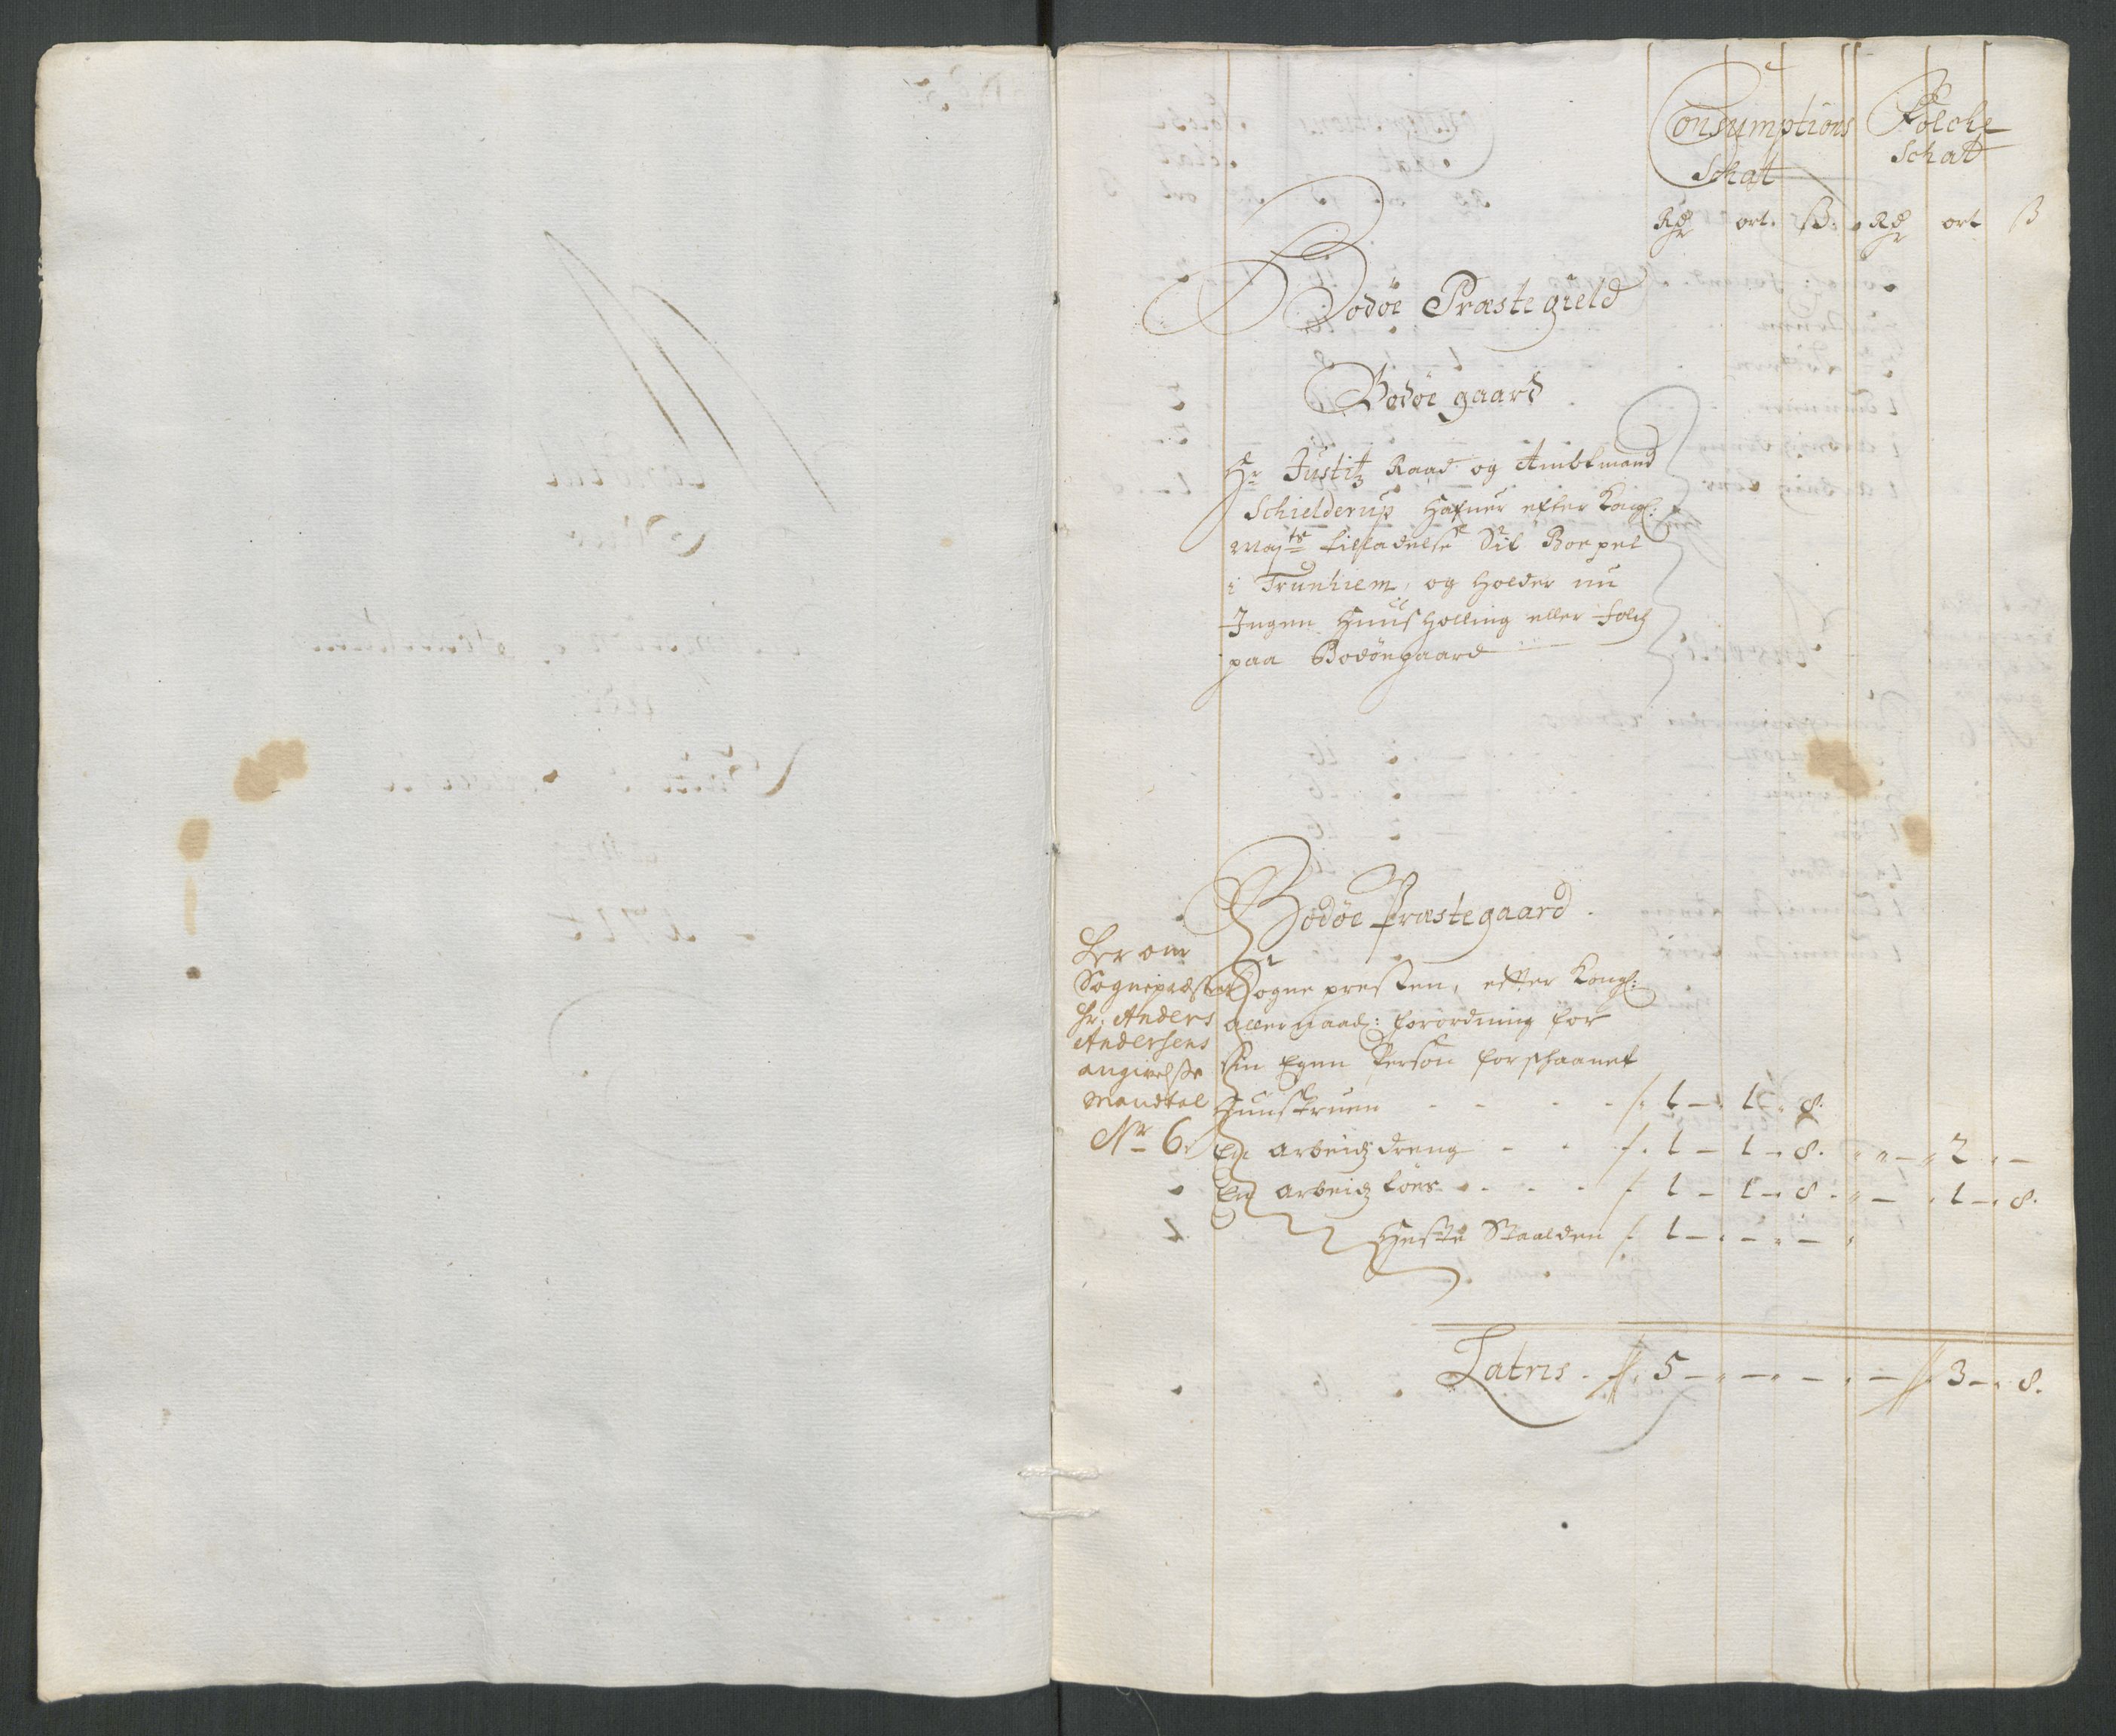 Consumptions Folche
Schat Schat
Rdr ort. ß: Rdr ort ß
Bodøe Præstegield
Bodøe gaard
Hr Justitz Raad og Ambtmand
Schielderup hafuer efter Kongl:
Mayts tilladelse Sit Boepel
i Trunhiem, og holder nu
Ingen huusholling eller folch
paa Bodøegaard
Bodøe Præstegaard.
Her om
Sognepræsten
Hr. Anders
Andersens
angivelsse
Mandtal
Nr 6.
Sognepresten, efter Kongl:
allernaad: forordning for
sin Egen Person forschaanet
Huustruen - - - - /. 1 – 1 . 8.
En arbeidz dreng - - /. 1 – 1 . 8. „ – „ 2 . –
En arbeidz tøes - - - /. 1 – 1 . 8. „ – . 1 – . 8.
Heste Staalden /. 1 – . – . – .
Latris . //. 5 – . – . – . – // 3 – . 8.